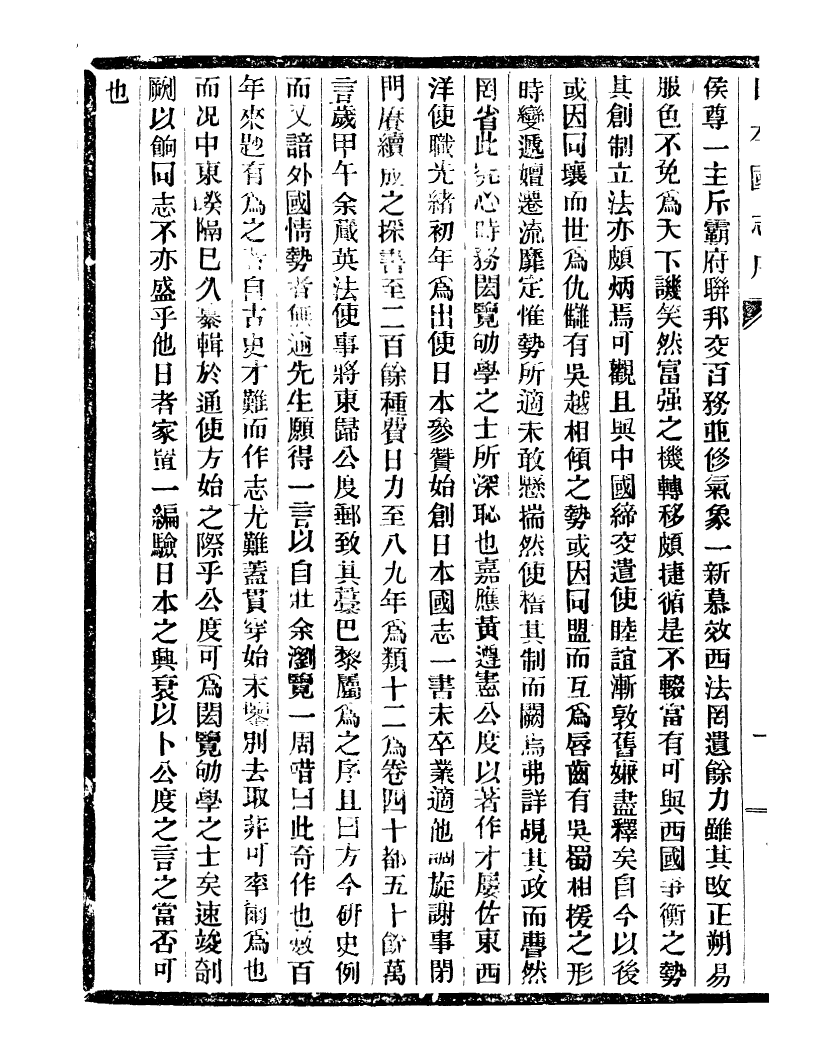 日本國志序 二
侯尊一主斥霸府聯邦交百務並修氣象一新慕效西法罔遺餘力雖其改正朔易
服色不免爲天下譏笑然富强之機轉移頗捷循是不輟富有可與西國爭衡之勢
其創制立法亦頗炳焉可觀且與中國締交遣使睦誼漸敦舊嫌盡釋矣自今以後
或因同壤而世爲仇讎有吳越相傾之勢或因同盟而互爲唇齒有吳蜀相援之形
時變遞嬗遷流靡定惟勢所適未敢懸揣然使稽其制而闕焉弗詳覘其政而瞢然
罔省此究心時務閎覽劬學之士所深恥也嘉應黃遵憲公度以著作才屢佐東西
洋使職光緒初年爲出使日本參贊始創日本國志一書未卒業適他調旋謝事閉
門賡續成之採書至二百餘種費日力至八九年爲類十二爲卷四十都五十餘萬
言歲甲午余蕆英法使事將東歸公度郵致其藁巴黎屬爲之序且曰方今研史例
而又諳外國情勢者無逾先生願得一言以自壯余瀏覽一周喟曰此奇作也數百
年來尟有爲之者自古史才難而作志尤難蓋貫穿始末鑒別去取非可率爾爲也
而况中東暌隔已久纂輯於通使方始之際乎公度可爲閎覽劬學之士矣速竣剞
劂以餉同志不亦盛乎他日者家置一編驗日本之興衰以卜公度之言之當否可
也